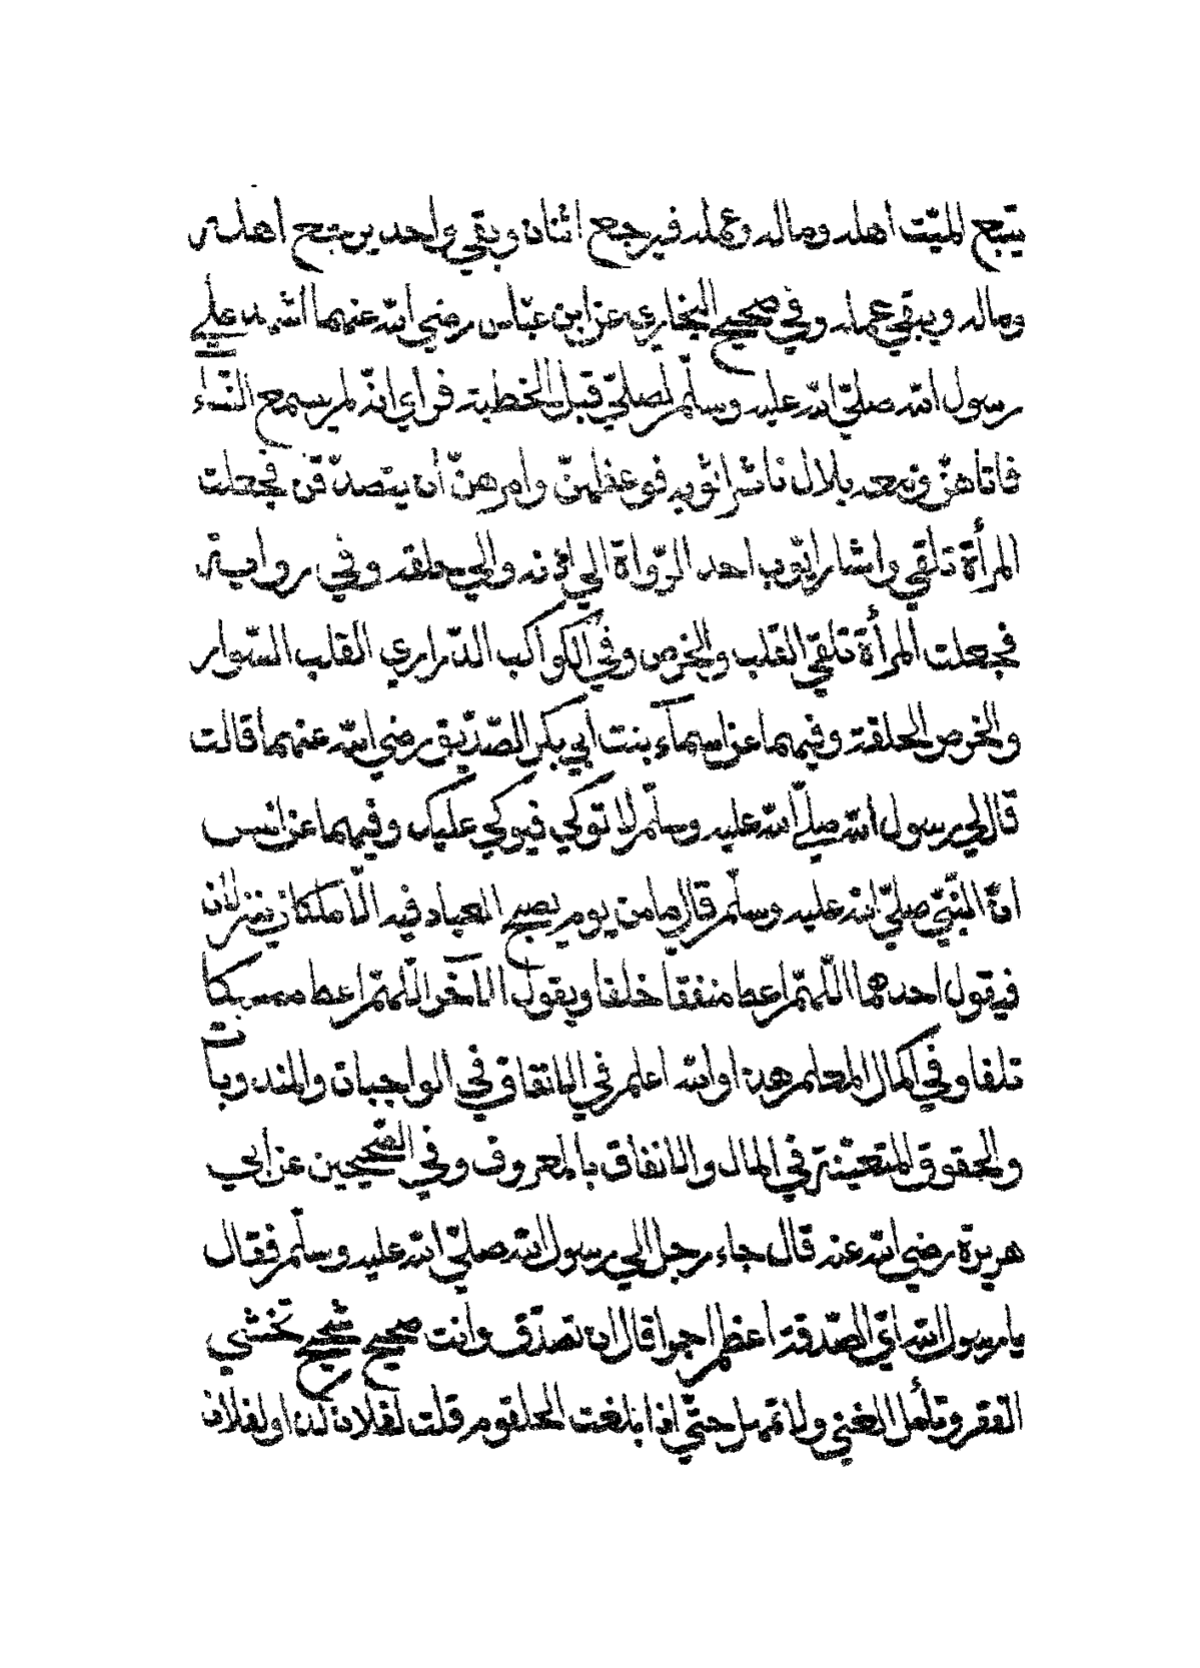 يتبع الميّت اهله وماله وعمله فيرجع اثنان ويبقي واحد يرجع اهله
وماله ويبقي عمله وفي صحيح البخاري عن ابن عبّاس رضي الله عنهما اشهد علي
رسول الله صلّي الله عليه وسلّم لصلّي قبل الخطبة فرأي انّه لم يسمع النّساء
فاتاهنّ ومعه بلال ناشر ثوبه فوعظهنّ وامرهنّ أن يتصدّقن فجعلت
المرأة تلقي واشار ايّوب احد الرّواة الي اذنه والي حلقه وفي رواية
فجعلت المرأة تلقي القلب والخرص وفي الكواكب الدّراري القلب السّوار
والخرص الحلقة وفيهما عن اسمآء بنت ابي بكر الصّدّيق رضي الله عنهما قالت
قال لي رسول الله صلّي الله عليه وسلّم لا توكي فيوكي عليك وفيهما عن انس
انّ النّبيّ صلّي الله عليه وسلّم قال ما من يوم يصبح العباد فيه الّا ملكان ينزلان
فيقول احدهما اللّهمّ اعط منفقا خلفا ويقول الآخر اللّهمّ اعط ممسكا
تلفا وفي اكمال المعلم هذا والله اعلم في الانفاق في الواجبات والمندوبات
والحقوق المتعيّنة في المال والانفاق بالمعروف وفي الصّحيحين عن ابي
هريرة رضي الله عنه قال جاء رجل الي رسول الله صلّي الله عليه وسلّم فقال
يا رسول الله ايّ الصّدقة اعظم اجرا قال ان تصدّق وانت صحيح شحيح تخشي
الفقر وتأمل الغني ولا تمهل حتّي اذا بلغت الحلقوم قلت لفلان كذا ولفلان